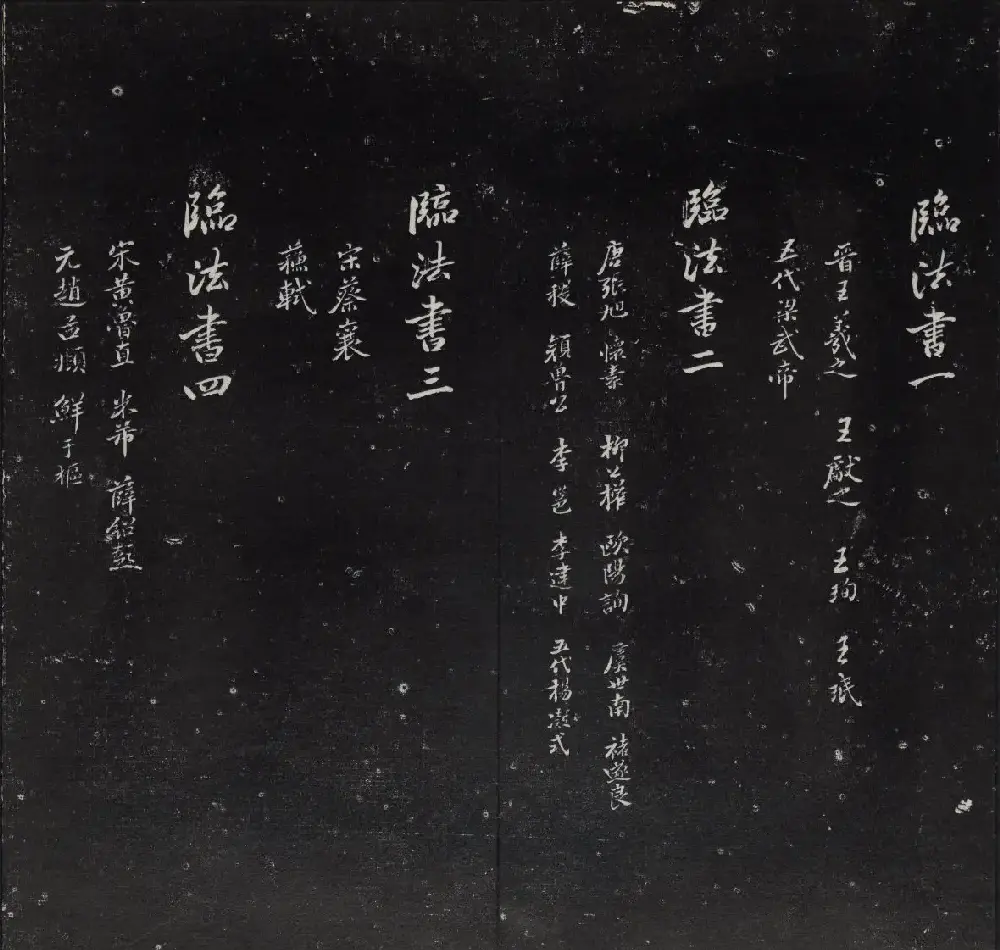 臨法書一
晋王羲之 王獻之 王珣 王珉
五代梁武帝
臨法書二
唐張旭 懷素 柳公權 歐陽詢 虞世南 褚遂良
薛稷 顏魯公 李邕 李建中 五代楊凝式
臨法書三
宋蔡襄
蘇軾
臨法書四
宋黃魯直 米芾 薛紹彭
元趙孟頫 鮮于樞